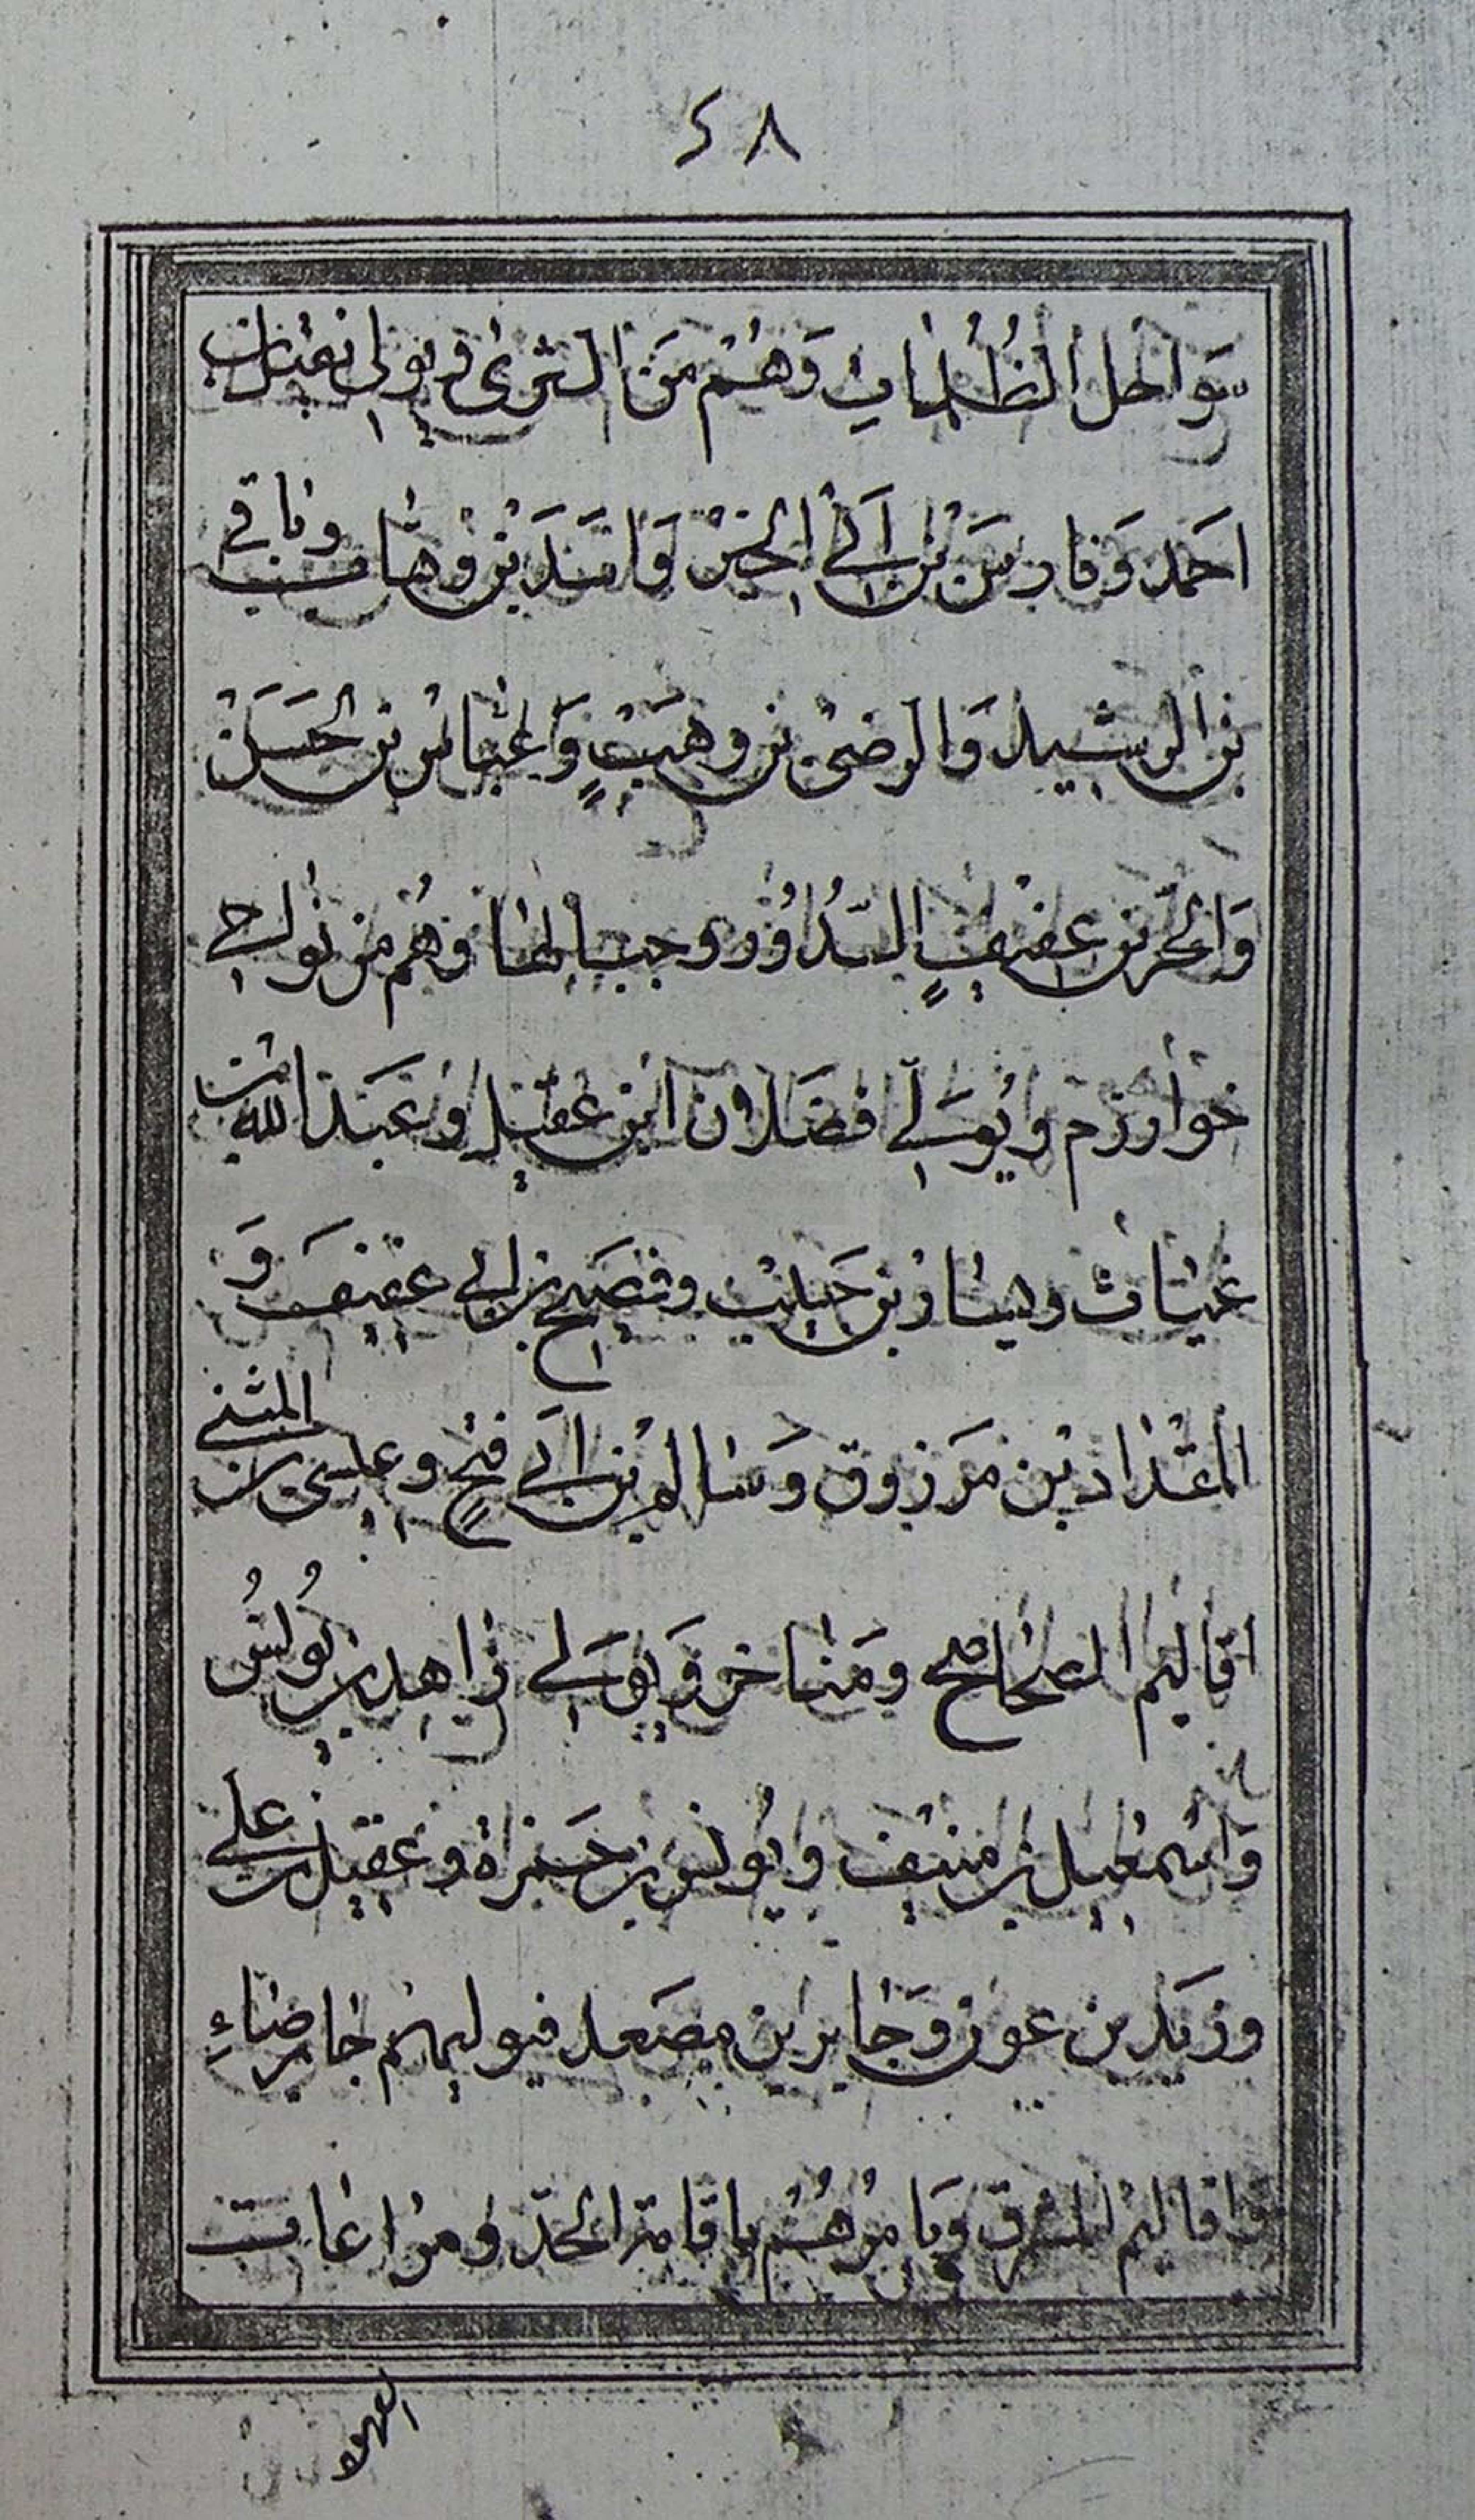 ٤٨
سَواحل الظُلمات وَهُم مَن الترى ويولى نعمان بن
احمد وَفارسَ بن اَبي الحسن وَاسَد بن وهبان وباقي
بن الرشيد وَالرضى بن وهيبٍ وَعباس بن الحسن
وَالحر بن عفيفٍ السُدُود وجبالها وهُم من نواحي
خوارزم ويُولي فضلان ابن عقيل وعبد الله بن
غياث وبسار بن حبيب وفصيح بن ابي عفيف وَ
المقداد بن مَرزوق وَسالم بن اَبي فتحٍ وعيسى بن المثنى
اقاليم الصحاصح ومَناخر وَيولي زاهد بن يُونسُ
وَاسمعيل بن منيف ويُونس بن حمزة وعقيل بن علي
وزيد بن عون وَجابر بن مصعد فيوليهم
واقاليم المشرق ويَامرهُم باقامة الحدّ ومراعات
العهود